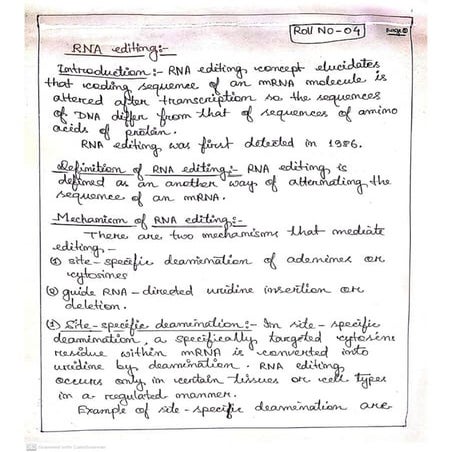 Roll No-04
RNA editing:-
Introduction:- RNA editing concept elucidates
that coding sequence of an mRNA molecule is
altered after transcription so the sequences
of DNA differ from that of sequences of amino
acids of protein.
RNA editing was first detected in 1986.
Definition of RNA editing:- RNA editing is
defined as an another way of alternating the
sequence of an mRNA.
Mechanism of RNA editing:-
There are two mechanisms that mediate
editing,-
① site-specific deamination of adenines or
cytosines
② guide RNA-directed uridine insertion or
deletion.
① Site-specific deamination:- In site-specific
deamination, a specifically targeted cytosine
residue within mRNA is converted into
uridine by deamination. RNA editing
occurs only in certain tissues or cell types
in a regulated manner.
Example of site-specific deamination are
Scanned with CamScanner